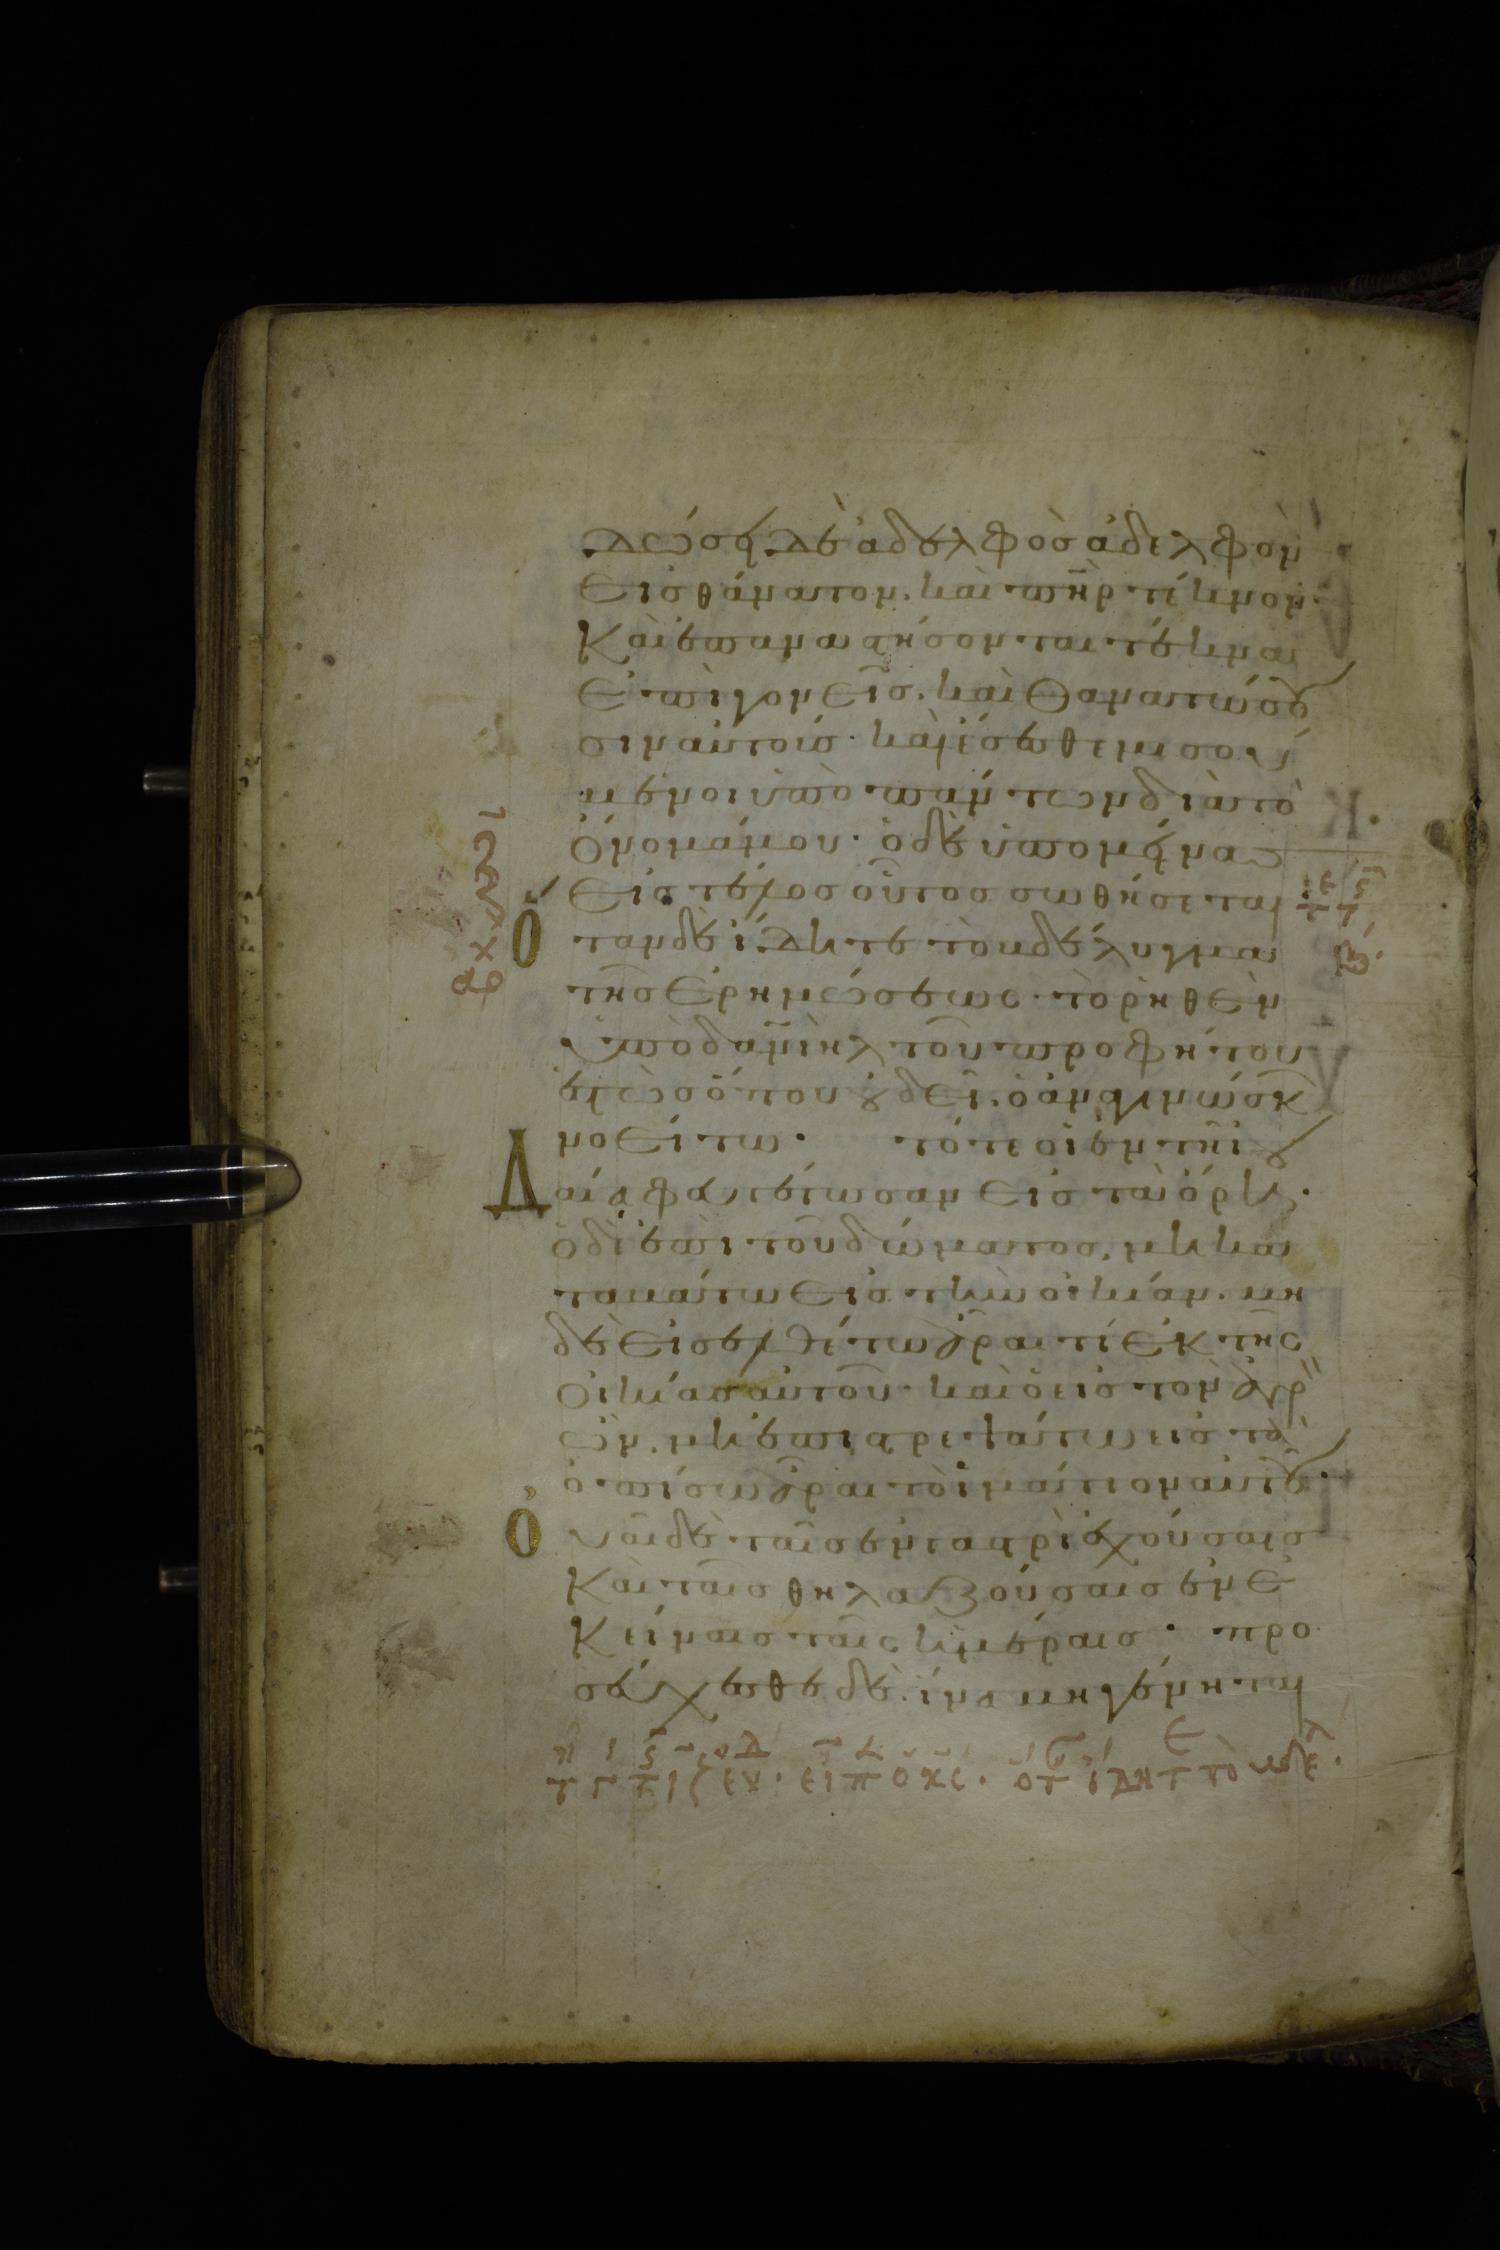 δώσει δὲ ἀδελφὸσ ἀδελφὸν
εἰσ θάνατον. καὶ πη̅ρ τέκνον.
Καὶ ἐπαναστήσονται τέκνα
ἐπὶ γονεῖσ. καὶ θανατώσου
σιν αὐτούσ. καὶ ἔσεσθε μισού
μενοι ὑπὸ πάντων διὰ τὸ
ὄνομά μου. ὁ δὲ ὑπομείνασ
εἰσ τέλοσ οὗτοσ σωθήσεται
Ὅταν δὲ ἴδητε τὸ βδέλυγμα
τῆσ ἐρημώσεωσ. τὸ ῥηθὲν
ὑπὸ δανιὴλ τοῦ προφήτου
ἑστὼσ ὅπου οὐ δεῖ. ὁ ἀναγινώσκ
νοείτω. τότε οἱ ἐν τῆι ἰου
Δαία φευγέτωσαν εἰσ τὰ ὄρη.
ὁ δὲ ἐπὶ τοῦ δώματοσ, μὴ κα
ταβάτω εἰσ τὴν οἰκίαν. μη
δὲ εἰσελθέτω ἆραι τί ἐκ τῆσ
οἰκίασ αὐτοῦ. καὶ ὁ εἰσ τὸν ἀγρ
ὸν. μὴ ἐπιστρεψάτω εἰσ τὰ
ὀπίσω ἆραι τὸ ἱμάτιον αὐτοῦ.
Οὐαὶ δὲ ταῖσ ἐν γαστρὶ ἐχούσαισ
Καὶ ταῖσ θηλαζούσαισ ἐν ἐ
Κείναισ ταῖσ ἡμέραισ. προ
σεύχεσθε δὲ. ἵνα μὴ γένηται
εἶπ ὁ κς. ὅτ ἴδητ τὸ βδελ.